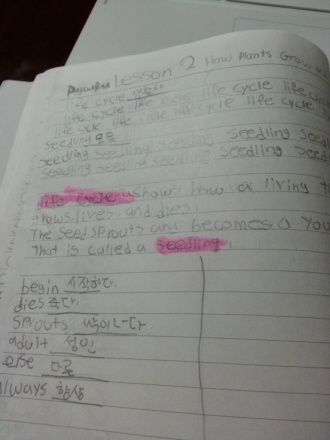 Lesson 2 How Plants Grow
life cycle
life cycle life cycle life cycle life cycle
life cycle life cycle life cycle life cycle
seedling 모종
seedling seedling seedling seedling seedling
seedling seedling seedling seedling seedling
life cycle shows how a living
hows lives and dies.
The seed sprouts and becomes a You
That is called a seedling.
begin 시작하다.
dies 죽다.
sprouts 싹이나다
adult 성인
else 다른
always 항상